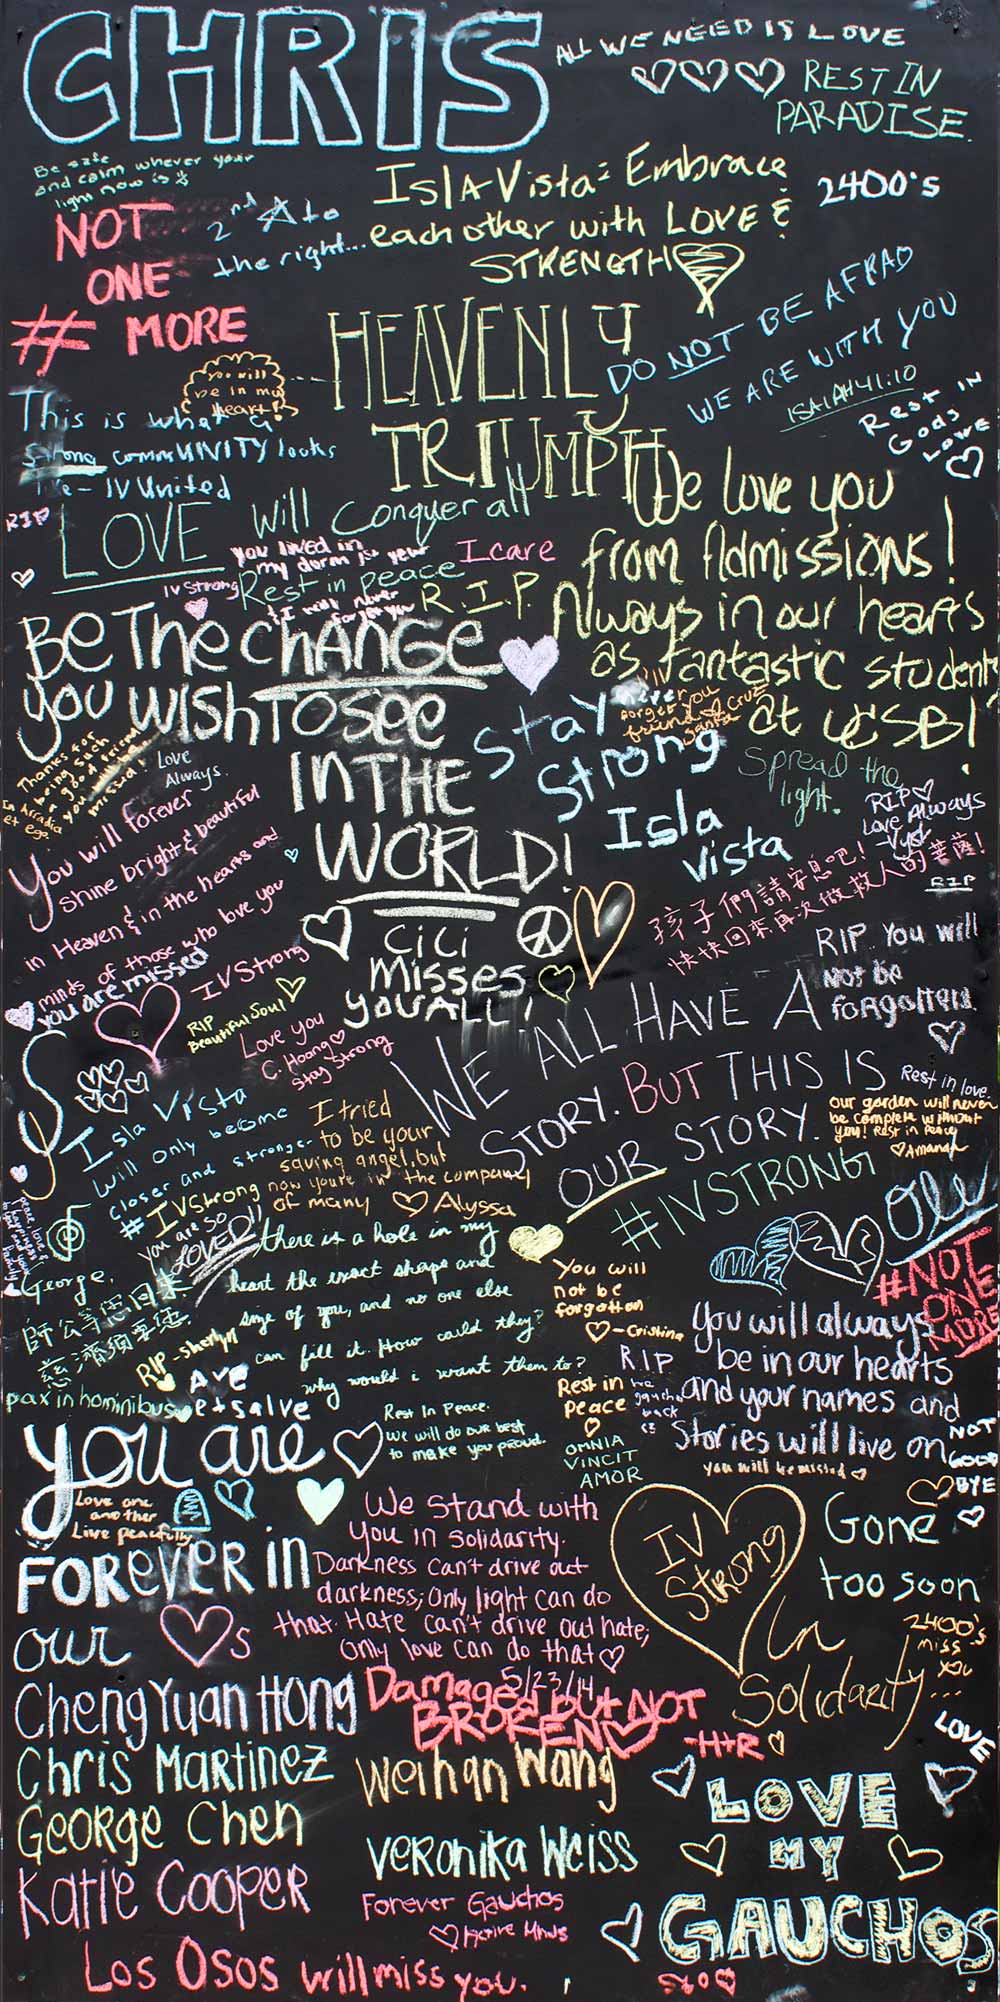 CHRIS
ALL WE NEED IS LOVE
REST IN
PARADISE.
Be safe
and calm wherver your
light now is
NOT
ONE
# MORE
2nd ☆ to
the right...
Isla Vista: Embrace
each other with LOVE &
STRENGTH
2400's
HEAVENLY
TRIUMPH
DO NOT BE AFRAD
WE ARE WITH YOU
ISAIAH 41:10
Rest IN
Gods
LOVE
you will
be in my
heart!
This is what a
strong commUNITY looks
like - IV United
RIP
LOVE Will Conquer all
you lived in
my dorm last year
& I will never
forget you
I care
IV Strong
Rest in peace
R.I.P.
We love you
from Admissions!
Always in our hearts
as fantastic students
at UCSB!
BE The chANGE
you WISH TO SEE
IN THE
WORLD!
Stay
Strong
Isla
Vista
never
forget you
friend
Cruz
Santa
Spread the
light.
RIP
Love Always
Thanks for
being such
a good friend
you missed!
Love
Always.
In Arcadia
et ego
You will forever
shine bright & beautiful
in Heaven & in the hearts and
minds of those who love you
you are missed
IV Strong
孩子們請安息吧!
快快回來再次做救人的菩薩!
RIP
RIP You will
Not be
forgotten.
CiCi
Misses
you ALL!
RIP
Beautiful Soul
Love you
C. Hoang
Stay Strong
WE ALL HAVE A
STORY. BUT THIS IS
OUR STORY.
#IVSTRONG
Rest in love.
our garden will never
be complete without
you! Rest in Peace
Amanda
Isla Vista
will only become
closer and stronger
#IVStrong
I tried
to be your
saving angel, but
now you're in the company
of many ♡ Alyssa
you are so
LOVED!!
Olé
#NOT
ONE
MORE
there is a hole in my
heart the exact shape and
size of you, and no one else
can fill it. How could they?
why would i want them to?
George,
RIP - Sherlyn
AVE
et salve
pax in hominibus
You will
not be
forgotten
♡ - Cristina
You will always
be in our hearts
and your names and
Stories will live on
R.I.P
Rest in
peace
OMNIA
VINCIT
AMOR
you will be missed
NOT
GOOD
BYE
Rest In Peace.
We will do our best
to make you proud.
you are
Love one
another
Live peacefully
FOREVER in
our ♡s
We stand with
you in solidarity.
Darkness can't drive out
darkness; only light can do
that. Hate can't drive out hate;
only love can do that ♡
IV
Strong
Gone
too soon
In
Solidarity...
2400's
miss
you
LOVE
5/23/14
Damaged but NOT
BROKEN
-H+R
Cheng Yuan Hong
Chris Martinez
George Chen
Katie Cooper
Weihan Wang
Veronika Weiss
Forever Gauchos
♡ Active Minds
LOVE
MY
GAUCHOS
Los Osos will miss you.